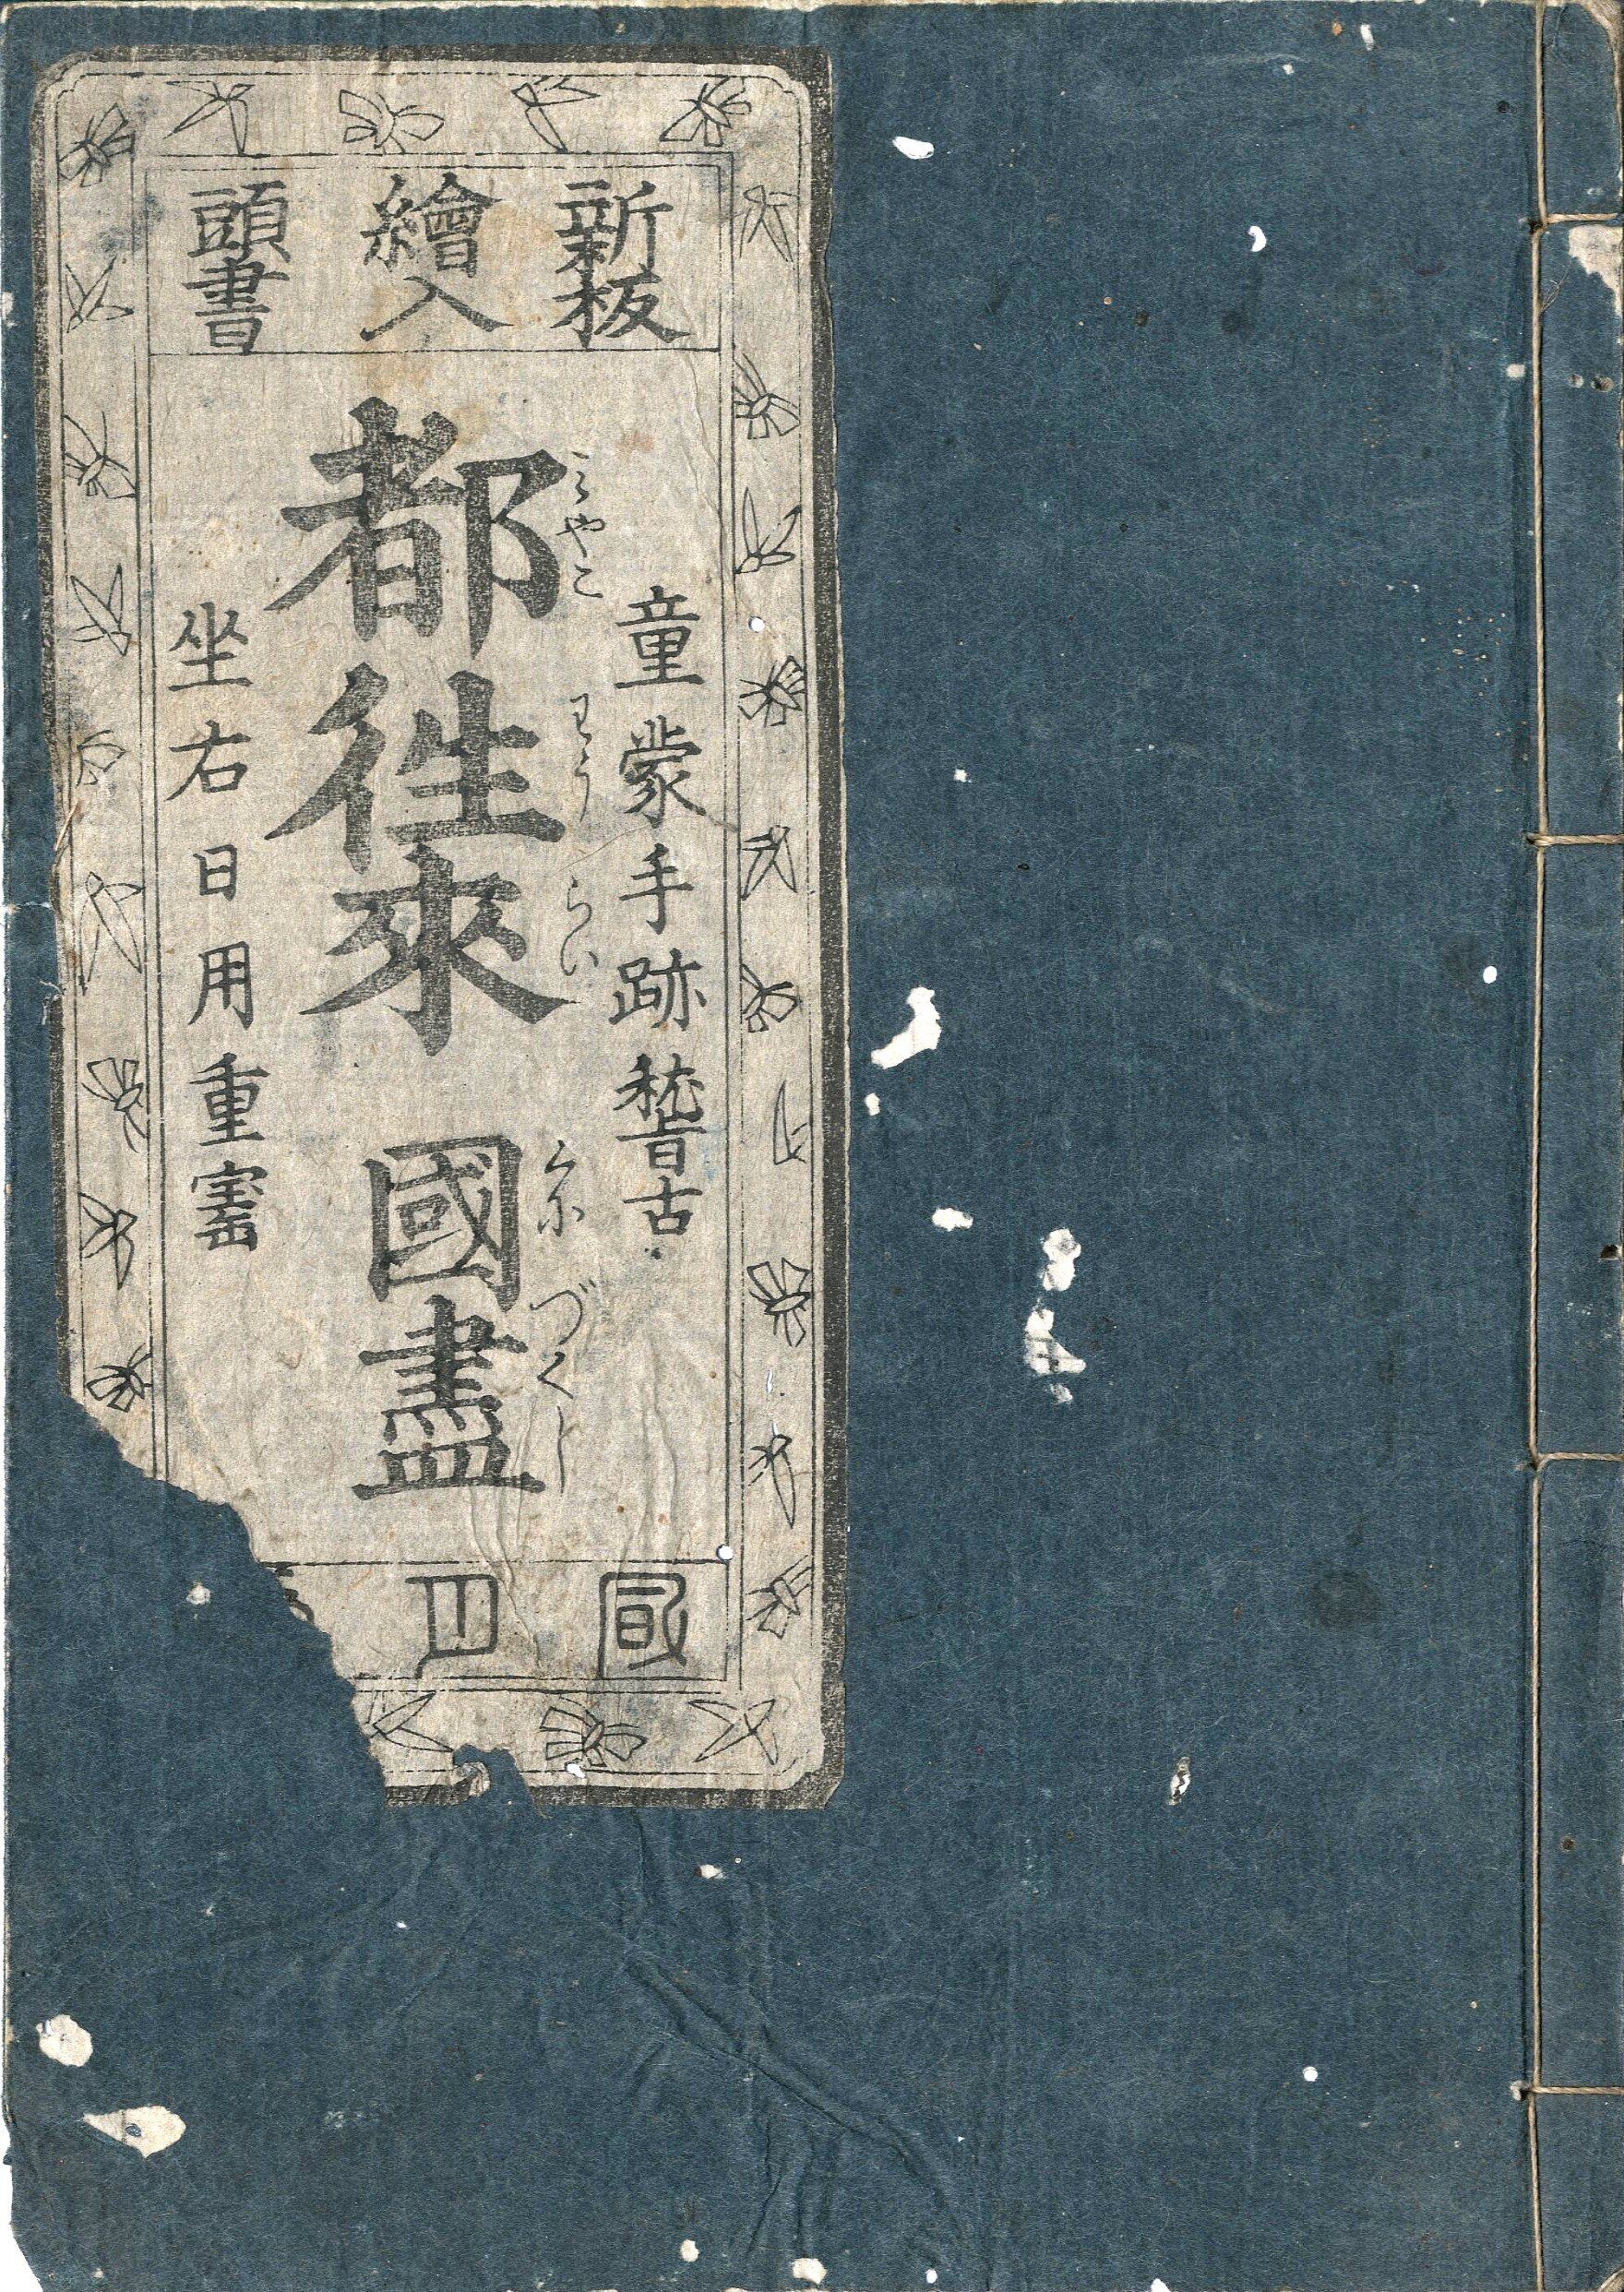 新板
繪入
頭書
童蒙手跡稽古
都徃來 國盡
みやこ わうらい くにづくし
坐右日用重寳